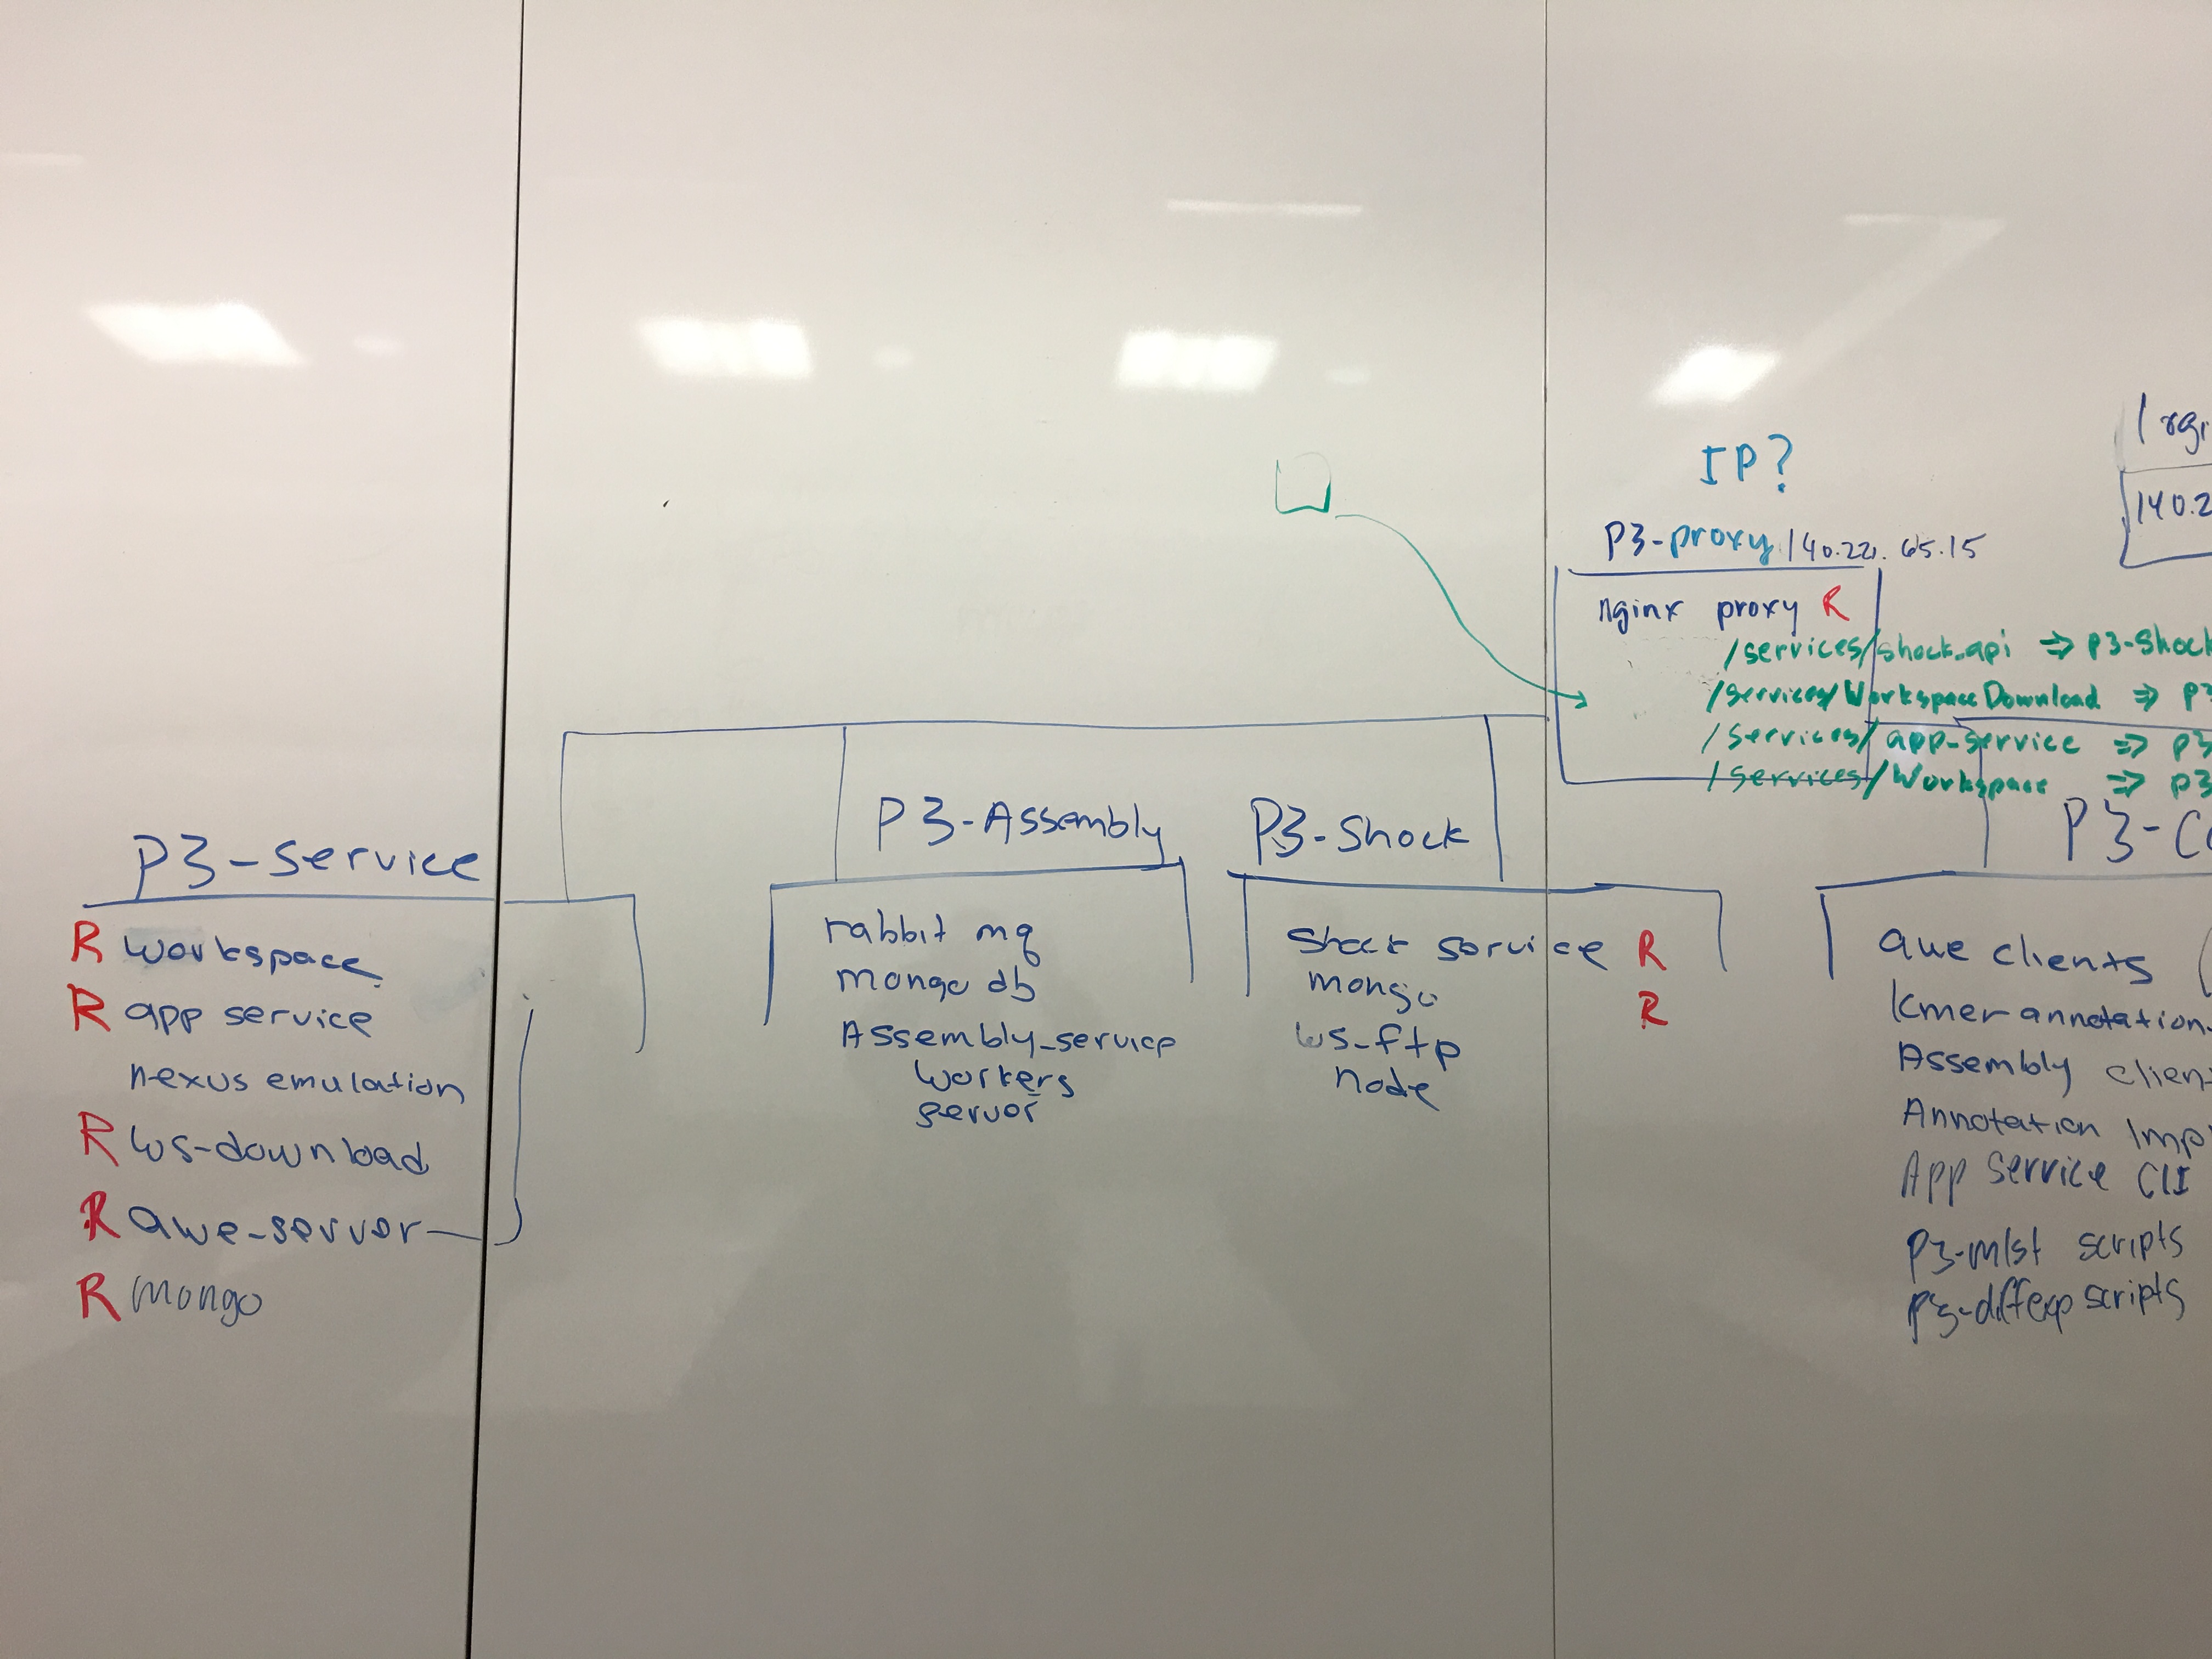 IP?
P3-proxy 140.221.65.15
nginx proxy R
/services/shock_api ⇒ P3-Shock
/services/WorkspaceDownload ⇒ P3
/services/app_service ⇒ P3
/services/Workspace ⇒ P3
140.2
P3-Service
R workspace
R app service
nexus emulation
R ws-download
R awe-server
R mongo
P3-Assembly
rabbit mq
mongo db
Assembly_service
workers
server
P3-Shock
Shock service R
mongo R
ws-ftp
node
P3-Co
awe clients (
kmer annotation-
Assembly client
Annotation Imp
App Service CLI
P3-mlst scripts
P3-diffexp scripts